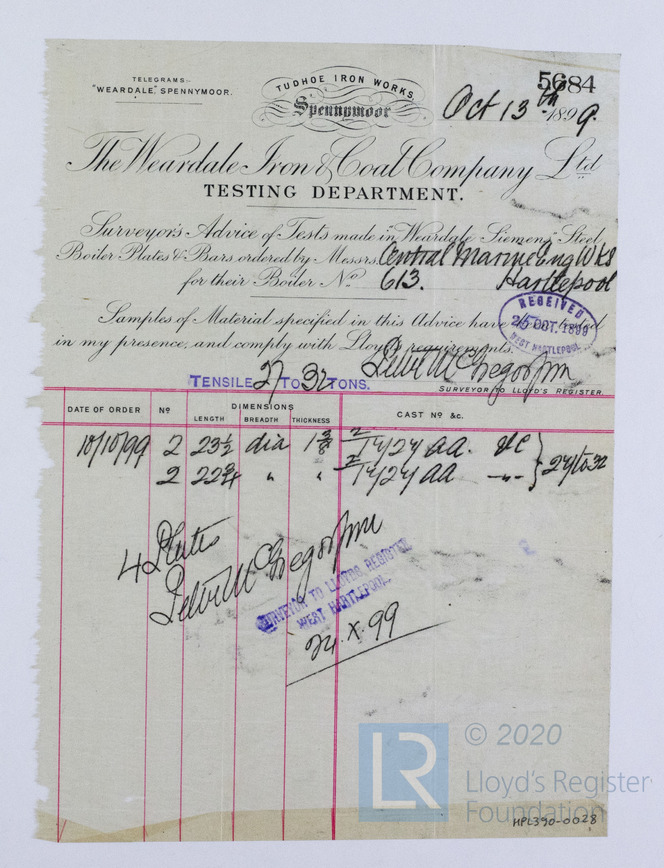 5684
TELEGRAMS:-
"WEARDALE," SPENNYMOOR.
TUDHOE IRON WORKS,
Spennymoor
Oct 13th 1899.
The Weardale Iron & Coal Company Ltd
TESTING DEPARTMENT.
Surveyor's Advice of Tests made in "Weardale Siemens" Steel
Boiler Plates & Bars ordered by Messrs. Central Marine Eng Wks
for their Boiler No. 613. Hartlepool
Samples of Material specified in this Advice have been tested
in my presence, and comply with Lloyd's requirements.
RECEIVED
25 OCT. 1899
WEST HARTLEPOOL
TENSILE 27 TO 32 TONS.
SURVEYOR TO LLOYD'S REGISTER.
DATE OF ORDER No DIMENSIONS CAST No &c.
LENGTH BREADTH THICKNESS
10/10/99 2 23½ dia 1⅜ 27 to 32
2 22¾ " "
4 Plates
SURVEYOR TO LLOYDS REGISTER
WEST HARTLEPOOL.
24.X.99
LR
© 2020
Lloyd's Register
Foundation
HPL390-0028